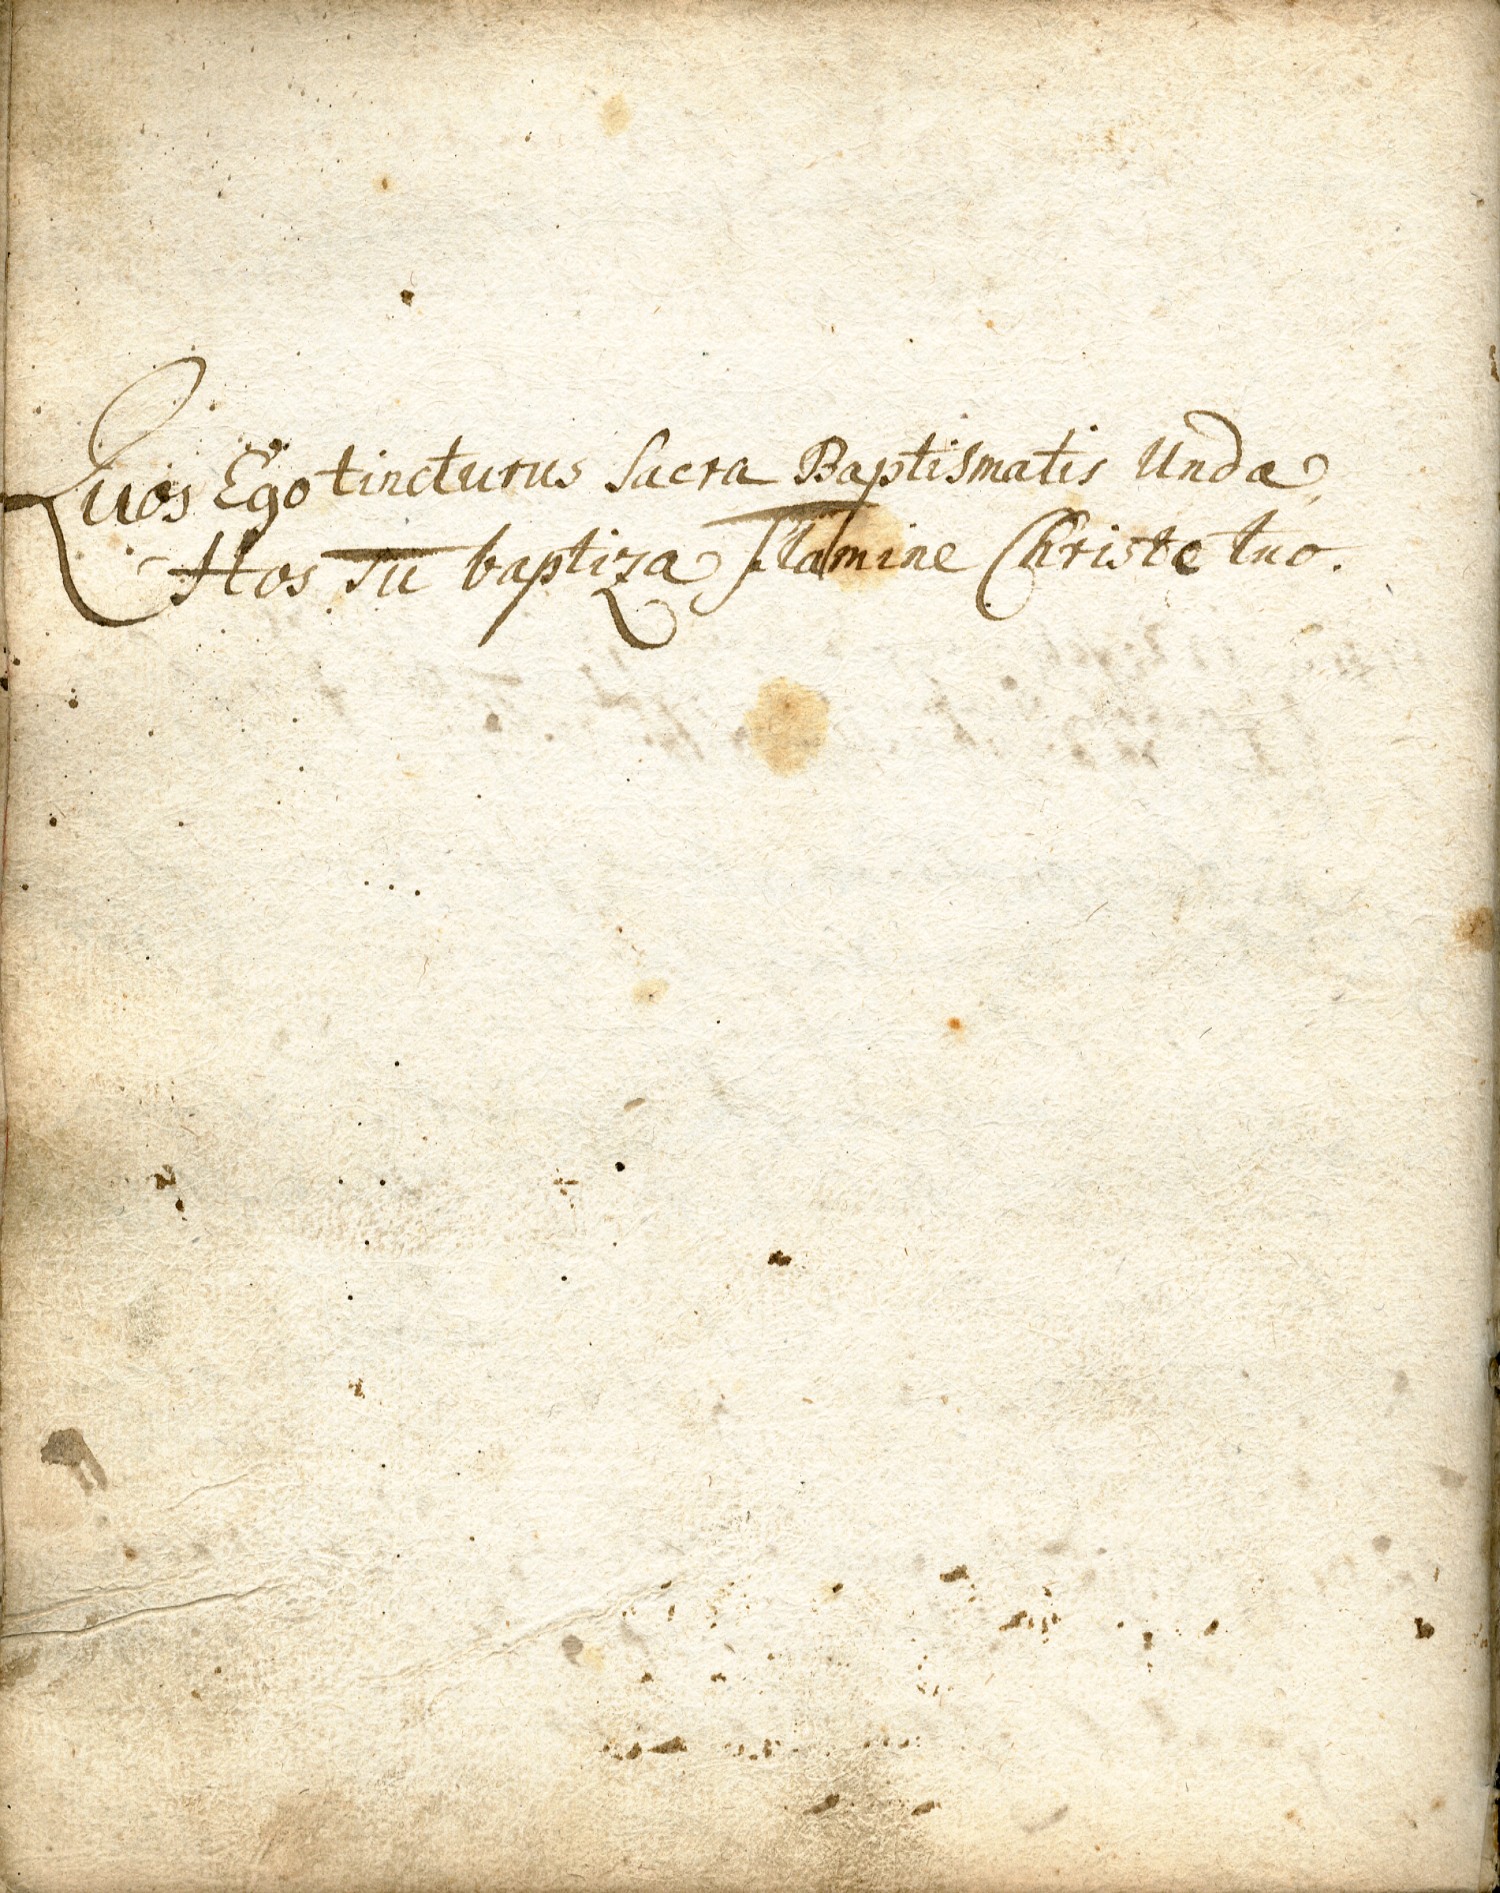 Quos Ego tincturus Sacra Baptismatis Unda,
Hos Tu baptiza Flamine Christe tuo.